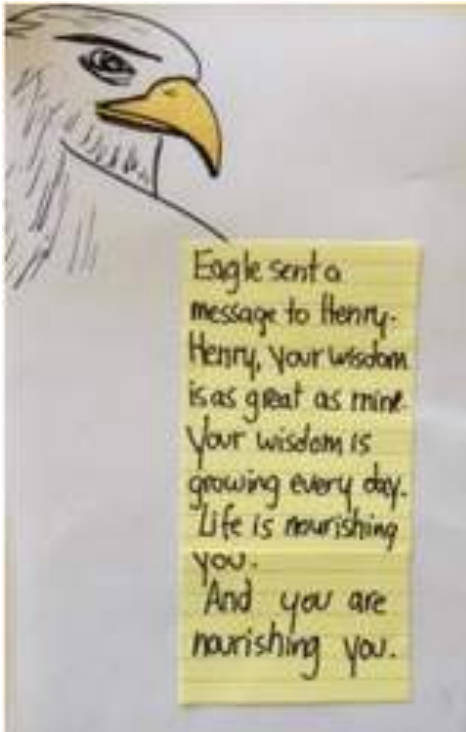 Eagle sent a
message to Henry.
Henry, your wisdom
is as great as mine.
Your wisdom is
growing every day.
Life is nourishing
you.
And you are
nourishing you.